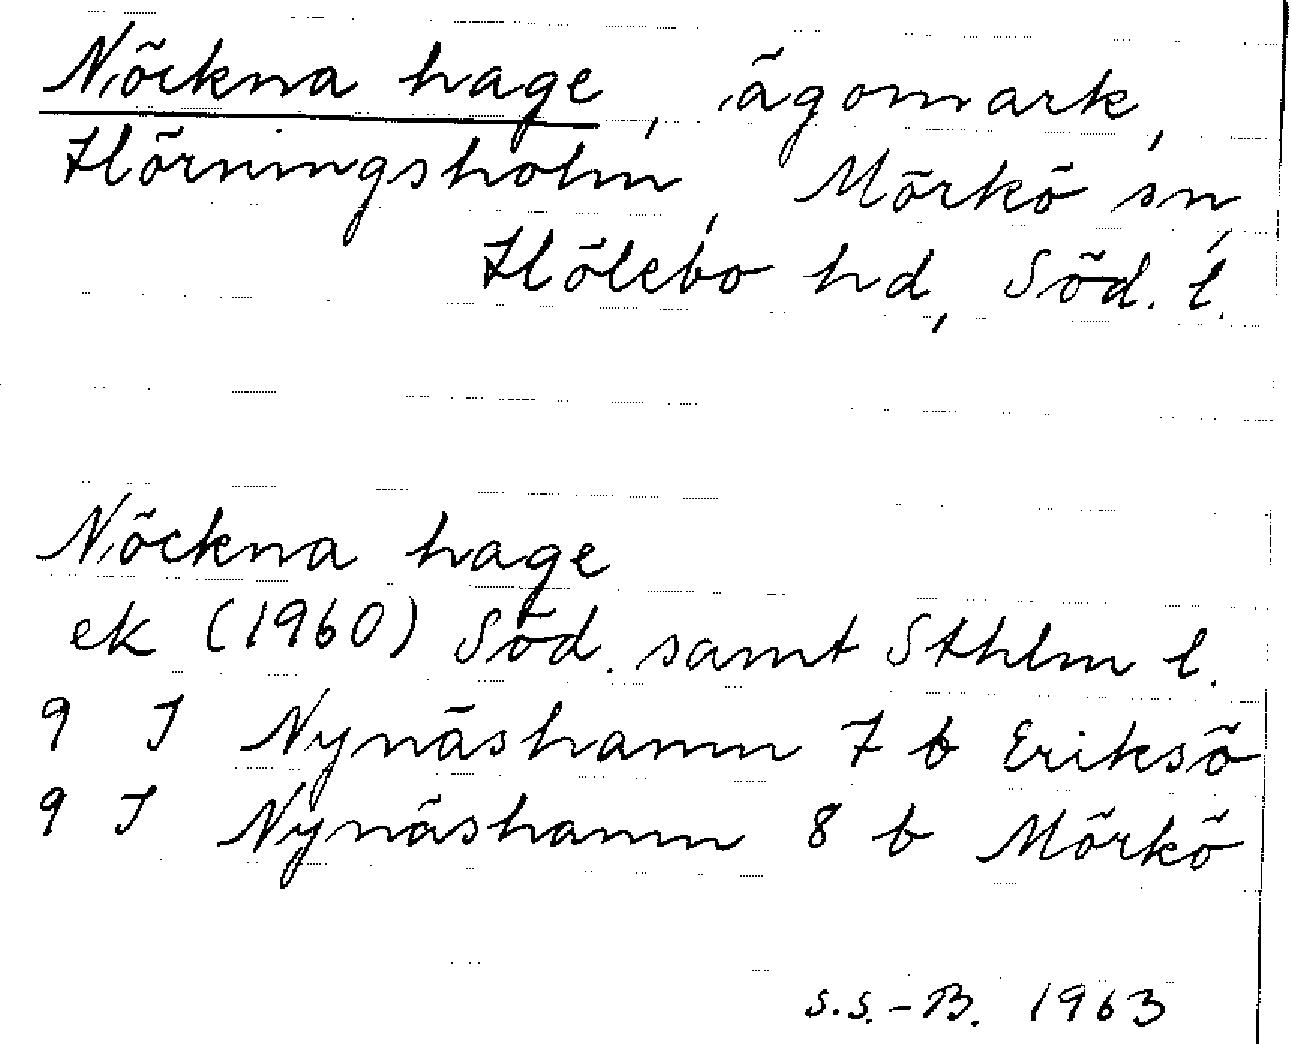 Nöckna hage, ägomark,
Hörningsholm, Mörkö sn,
Hölebo hd, Söd. l.
Nöckna hage
ek (1960) Söd. samt Sthlm l.
9 I Nynäshamn 7 b Eriksö
9 I Nynäshamn 8 b Mörkö
S.S.-B. 1963